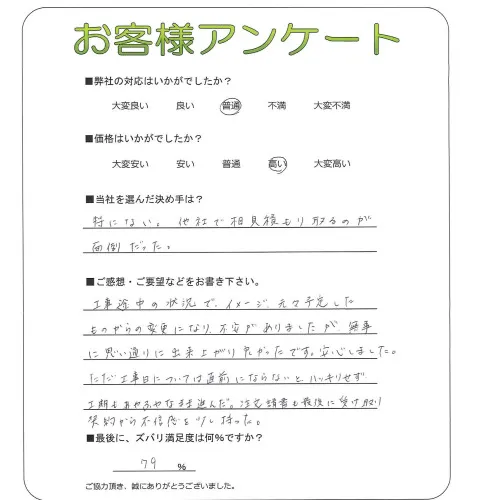 お客様アンケート
■弊社の対応はいかがでしたか？
大変良い 良い 普通 不満 大変不満
■価格はいかがでしたか？
大変安い 安い 普通 高い 大変高い
■当社を選んだ決め手は？
特にない。他社で相見積もり取るのが
面倒だった。
■ご感想・ご要望などをお書き下さい。
工事途中の状況で、イメージ、元々予定した
ものからの変更になり、不安がありましたが、無事
に思い通りに出来上がり良かったです。安心しました。
ただ工事日については直前にならないと、ハッキリせず、
工期もあやふやなまま進んだ。注文請書も最後に受け取り
契約から不信感を少し持った。
■最後に、ズバリ満足度は何%ですか？
79 %
ご協力頂き、誠にありがとうございました。